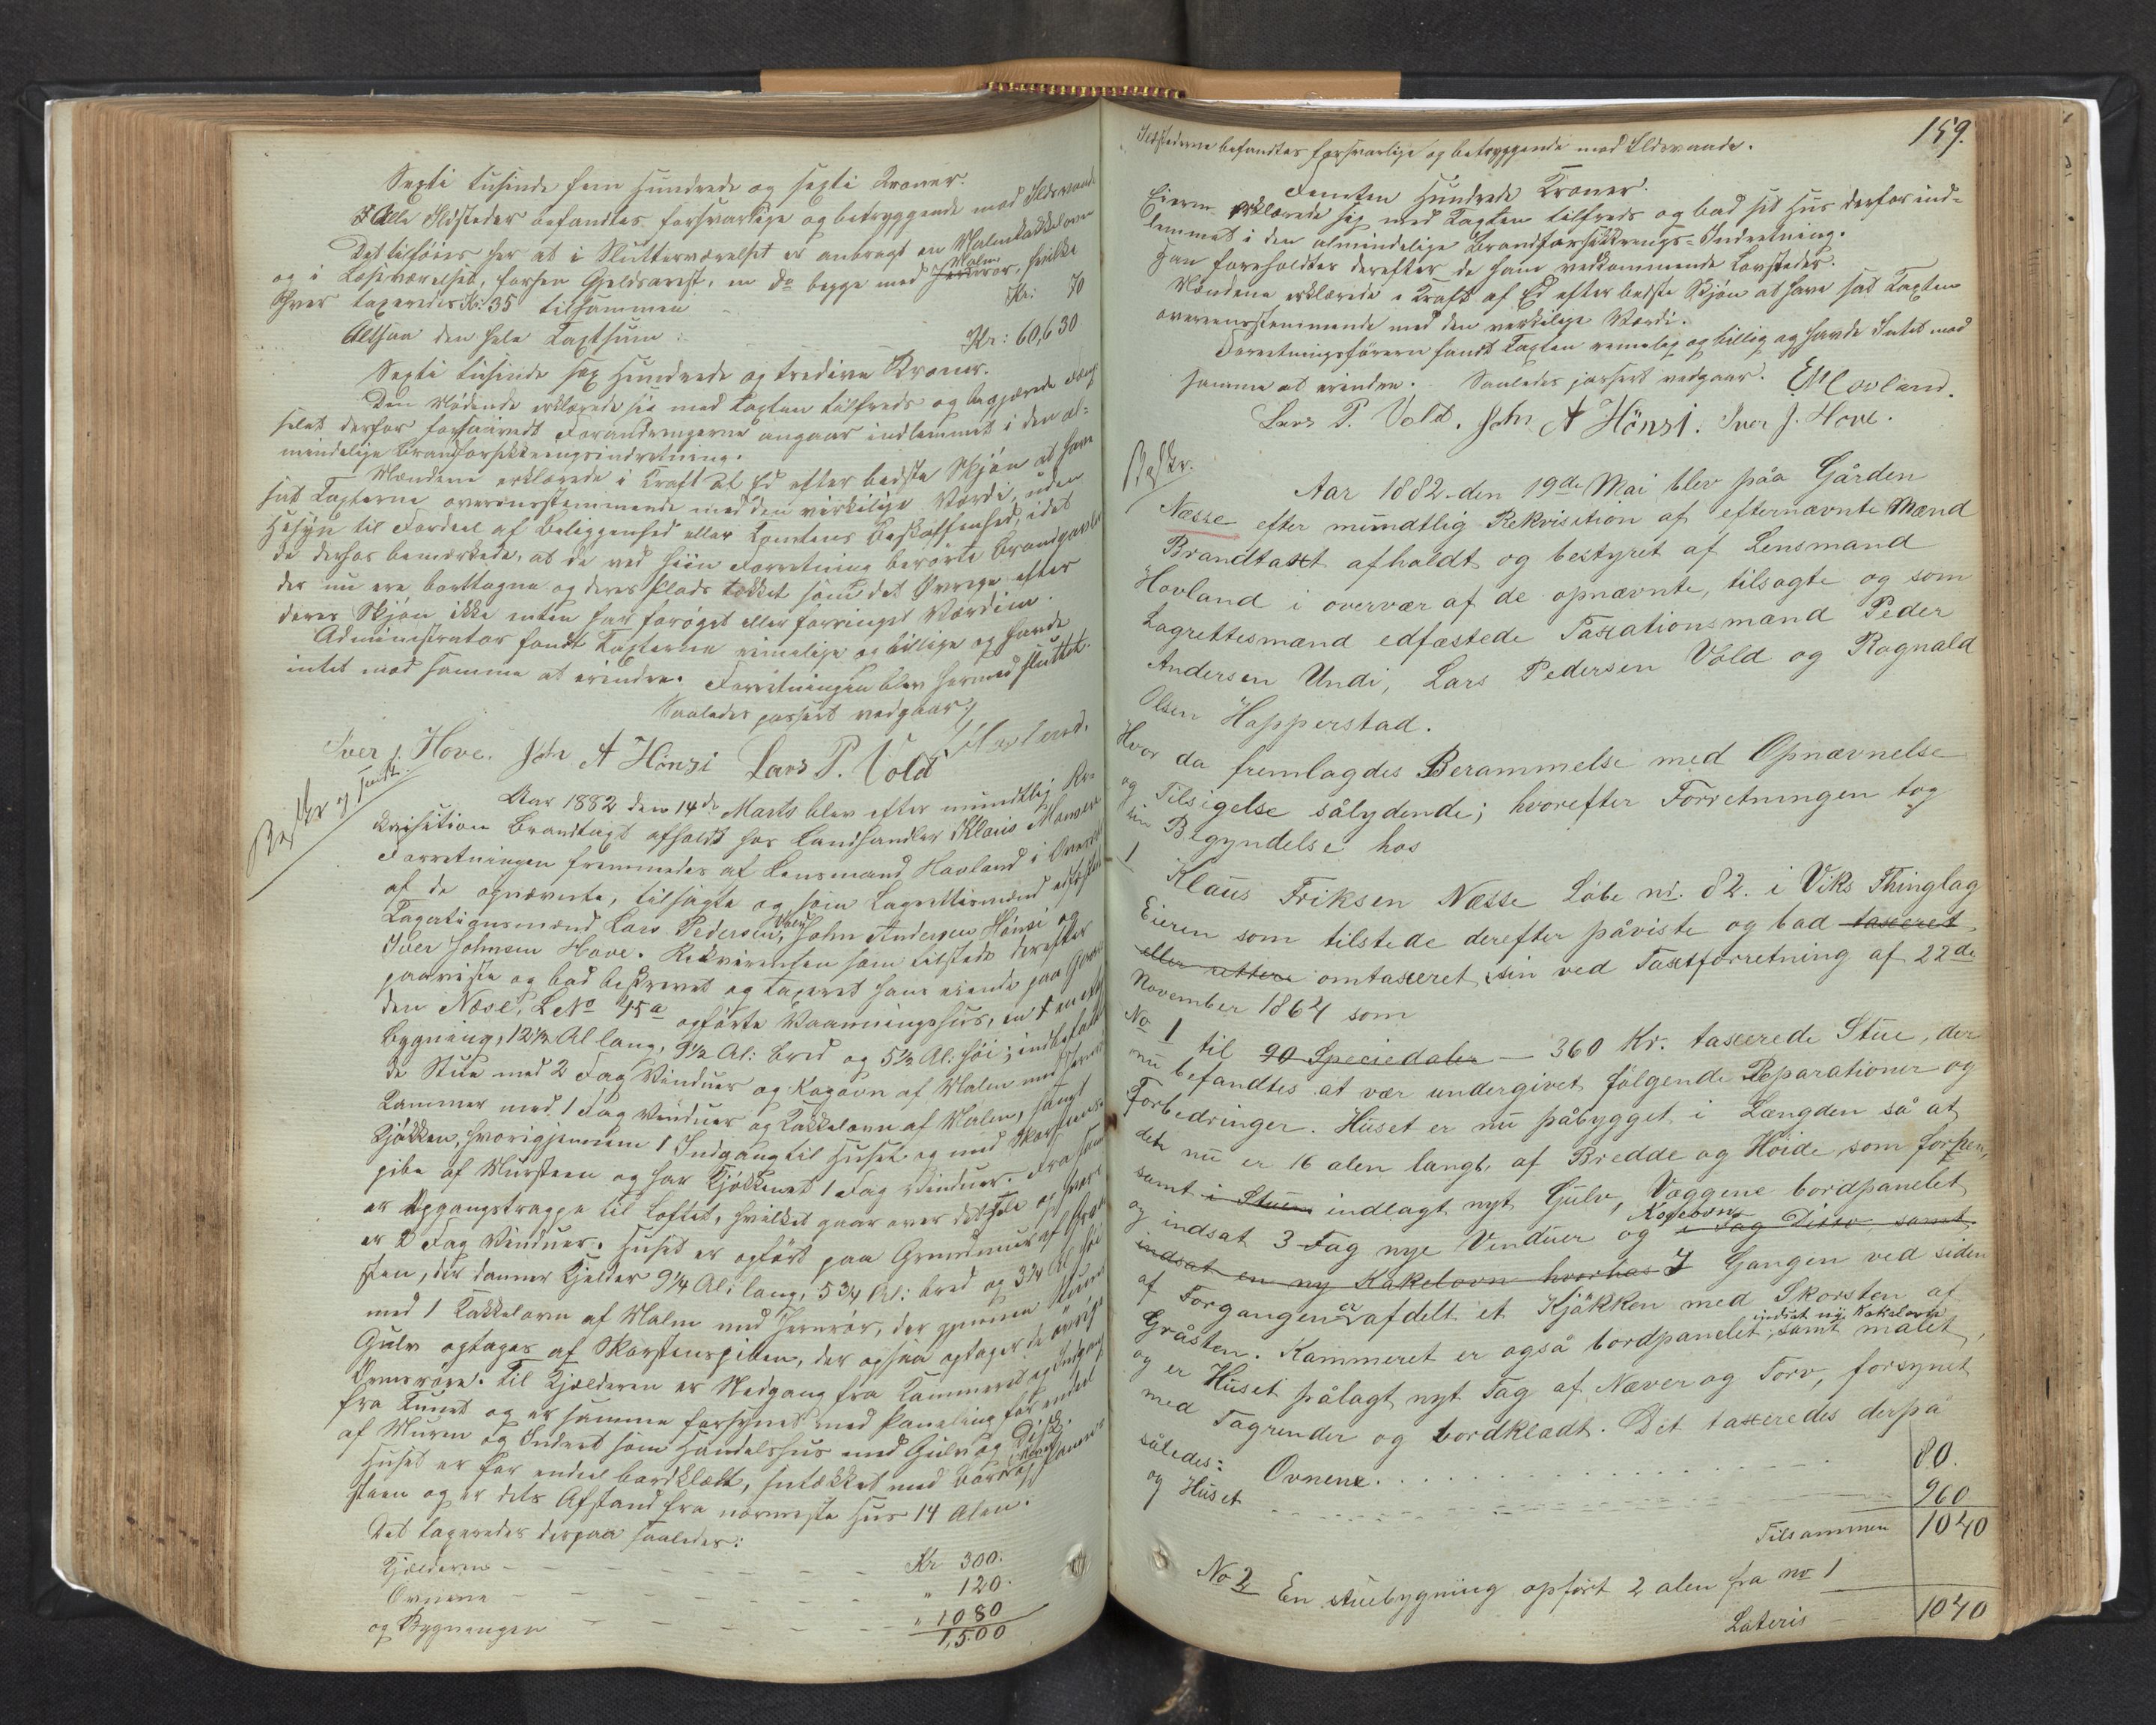 Sexti tusinde fem Hundrede og sexti Kroner.
Alle Ildsteder befandtes forsvarlige og betryggende mod Ildsvaade
Det tilføies her at i Slutterværelset er anbragt en Malmkakkelovn
og i Løseværelset, forhen Gjeldsarrest, en do begge med Jernrør, hvilke
Malm
hver taxeredes Kr: 35 tilsammen Kr: 70
Altsaa den hele Taxtsum: Kr: 60,630
Sexti tusinde sex Hundrede og tredive Kroner.
Den Mødende erklærede sig med Taxten tilfreds og begjærede Fængselet
derfor forsaavidt Forandringerne angaar indlemmet i den al-
mindelige Brandforsikringsindretning.
Mændene erklærede i Kraft af Ed efter bedste Skjøn at have
sat Taxterne overensstemmende med den virkelige Værdi, uden
Hensyn til Fordeel af Beliggenhed eller Tomtens Beskaffenhed, idet
de derhos bemærkede, at de ved siin Forretning berørte Brandgavle
der nu ere borttagne og deres Plads tækket som det Øvrige efter
deres Skjøn ikke enten har forøget eller forringet Værdien.
Administrator fandt Taxterne rimelige og billige og havde
intet mod samme at erindre. Forretningen blev hermed sluttet.
Saaledes passeret vedgaar
Hovland.
Iver J. Hove. John A Hönsi Lars P. Vold
Aar 1882 den 14de Marts blev efter mundtlig Re-
kvisition Brandtaxt afholdt hos Landhandler Klaus Monsen
Forretningen fremmedes af Lensmand Hovland i Overvær
af de opnævnte, tilsagte og som Lagrettesmænd edfæstede
Taxationsmænd Lars Pedersen Vold, John Andersen Hönsi og
Iver Johnsen Hove. Rekvirenten som tilstede derefter
paaviste og bad beskrevet og taxeret hans eiende paa Gaar-
den Næse, L No 45a opførte Vaaningshus, en
Bygning, 12½ Al lang, 9½ Al: bred og 5½ Al: høi; indbefatte
de Stue med 2 Fag Vinduer og Kogeovn af Malm med
Kammer med 1 Fag Vinduer og Kakkelovn af Malm, samt
Kjøkken, hvorigjennem 1 Indgang til Huset og med Skorsteens-
pibe af Mursteen og har Kjøkkenet 1 Fag Vinduer. Fra samme
er Opgangstrappe til Loftet, hvilket gaar over det Hele og hvor
er 2 Fag Vinduer. Huset er opført paa Grundmuur af Graa-
steen, der danner Kjelder 9¼ Al: lang, 5¾ Al: bred og 3¼ Al høi
med 1 Kakkelovn af Malm med Jernrør, der gjennem Stuens
Gulv optages af Skorstenspiben, der ogsaa optager de øvrige
Ovnsrøre. Til Kjælderen er Nedgang fra Kammeret og Indgang
fra Tunet og er samme forsynet med Paneling for endeel
af Muren og Indret som Handelshus med Gulv og Disk.
Huset er for endeel bordklædt, tækket med Bord
steen og er dets Afstand fra nærmeste Hus 14 Alen.
Det taxeredes derpaa saaledes:
Kjælderen Kr 300.
Ovnene " 120.
og Bygningen " 1080
1,500
159.
Ildstederne befandtes forsvarlige og betryggende mod Ildsvaade.
Femten Hundrede Kroner.
Eieren erklærede sig med Taxten tilfreds og bad sit Hus derfor ind-
lemmet i den almindelige Brandforsikkrings-Indretning.
Han foreholdtes derefter de ham vedkommende Lovsteder.
Mændene erklærede i Kraft af Ed efter bedste Skjøn at have sat Taxten
overensstemmende med den virkelige Værdi.
Forretningsføreren fandt Taxten rimelig og billig og havde Intet mod
samme at erindre. Saaledes passeret vedgaar. Hovland.
Lars P. Vold. John A Hönsi. Iver J. Hove.
Beskr.
Aar 1882 den 19de Mai blev påa Gården
Næsse efter mundtlig Rekvisition af efternævnte Mænd
Brandtaxt afholdt og bestyret af Lensmand
Hovland i overvær af de opnævnte, tilsagte og som
Lagrettesmænd edfæstede Taxationsmænd Peder
Andersen Undi, Lars Pedersen Vold og Ragnald
Olsen Hopperstad.
Hvor da fremlagdes Berammelse med Opnævnelse
og Tilsigelse sålydende; hvorefter Forretningen tog
sin Begyndelse hos
1
Klaus Eriksen Næsse Løbe nr. 82. i Viks Thinglag
Eieren som tilstede derefter påviste og bad taxeret
eller rettere omtaxeret sin ved Taxtforretning af 22de
November 1864 som
No 1 til 90 Speciedaler — 360 Kr. taxerede Stue, der
nu befandtes at vær undergivet følgende Reparationer og
Forbedringer. Huset er nu påbygget i Længden så at
det nu er 16 alen langt, af Bredde og Høide som forhen,
samt i Stuen indlagt nyt Gulv, Væggene bordpanelet
Kogeovn
og indsat 3 Fag nye Vinduer og i Fag Disse samt
indsat en ny Kakelovn hvorhos I Gangen ved siden
af Forgangen er afdelt et Kjøkken med Skorsten af
indsat ny Kakelovn
Gråsten. Kammeret er også bordpanelet, samt malet,
og er Huset pålagt nyt Tag af Næver og Torv, forsynet
med Tagrender og bordklædt. Det taxeredes derpå
således: Ovnene 80.
og Huset 960
Tilsammen 1040
No 2 En stuebygning opført 2 alen fra no 1
Lateris 1040